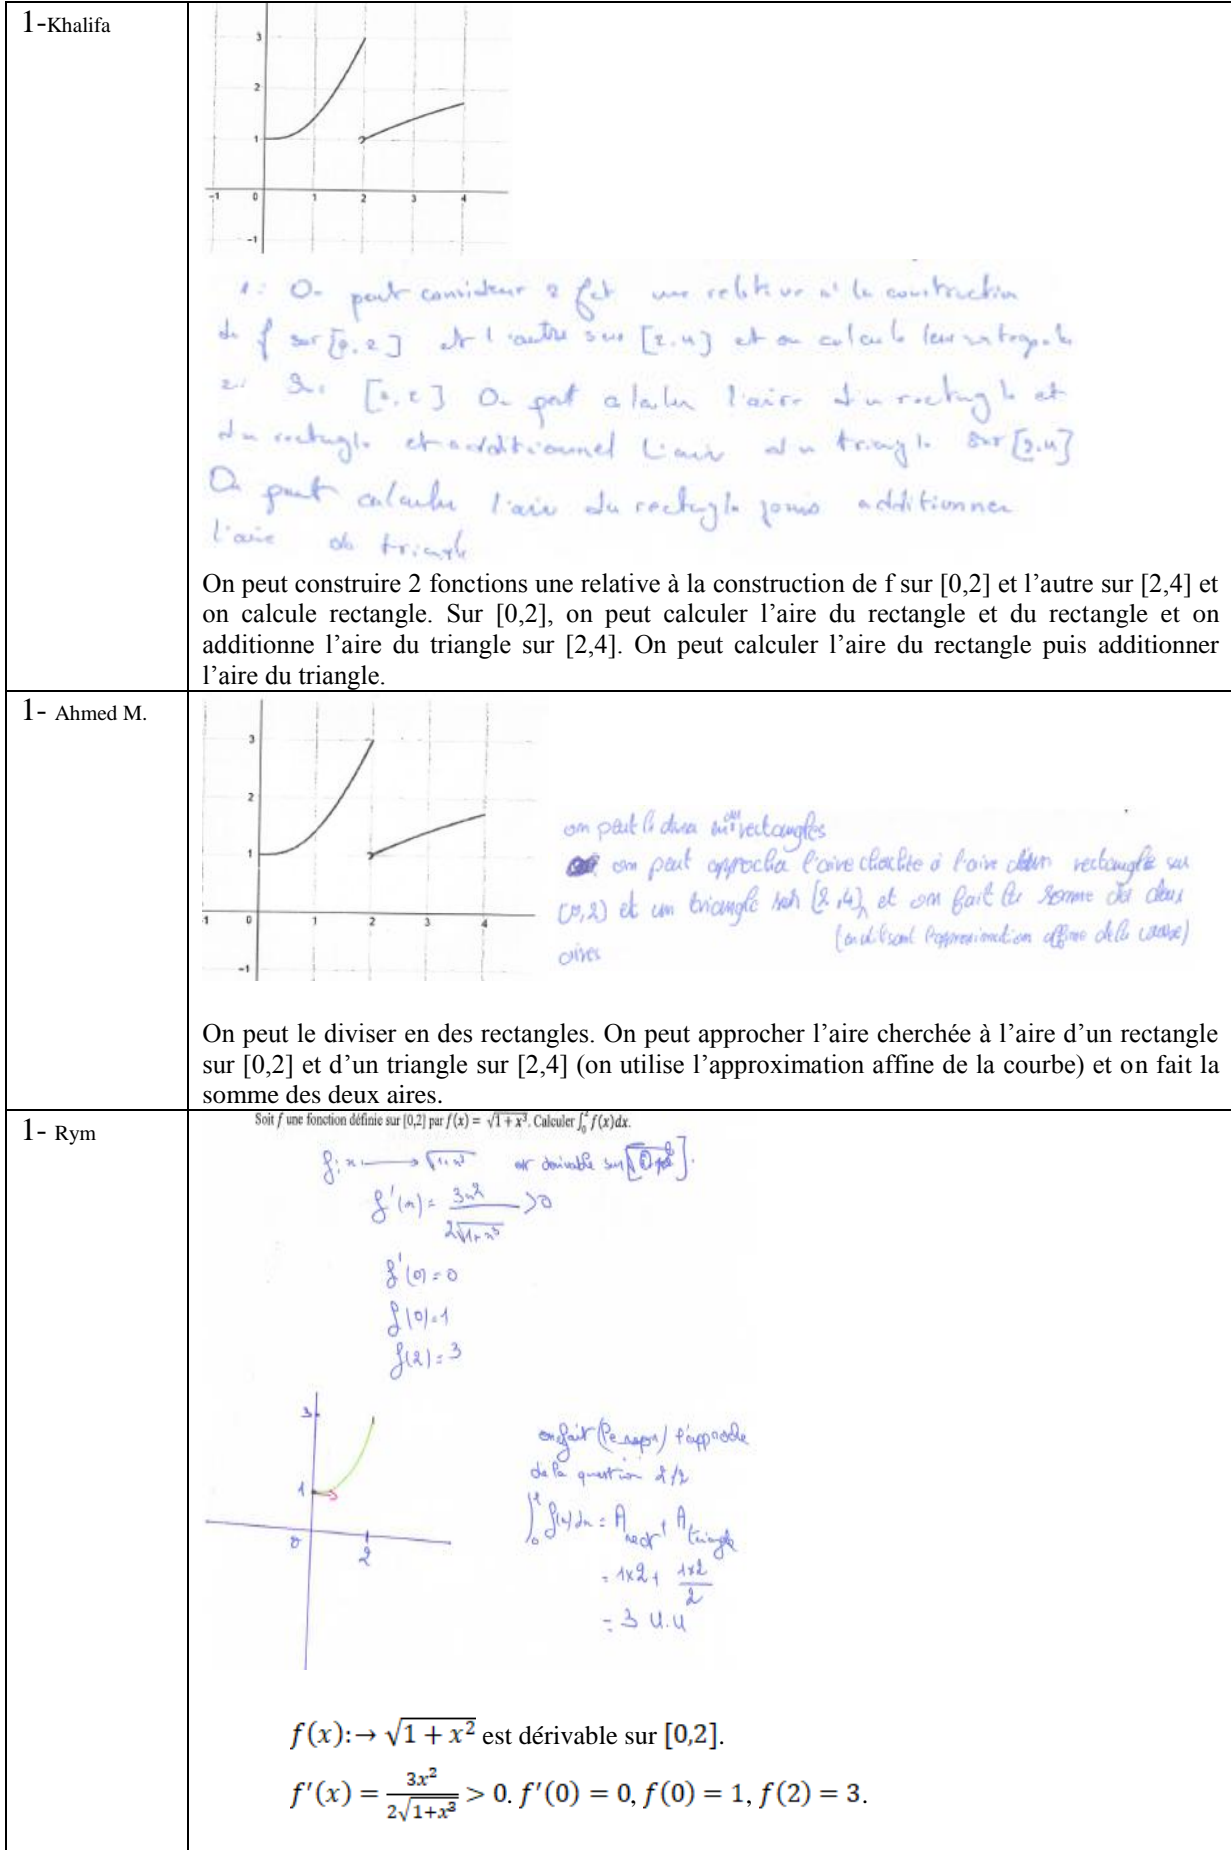 1-Khalifa
3
2
1
-1 0 1 2 3 4
-1
1: On peut considerer 2 fct une relative à la construction
de f sur [0,2] et l'autre sur [2,4] et on calcule leur
2: Sur [0,2] On peut calculer l'aire du rectangle et
du rectangle et additionnel l'aire du triangle sur [2,4]
On peut calculer l'aire du rectangle puis additionner
l'aire du triangle
On peut construire 2 fonctions une relative à la construction de f sur [0,2] et l'autre sur [2,4] et
on calcule rectangle. Sur [0,2], on peut calculer l'aire du rectangle et du rectangle et on
additionne l'aire du triangle sur [2,4]. On peut calculer l'aire du rectangle puis additionner
l'aire du triangle.
1- Ahmed M.
3
2
1
-1 0 1 2 3 4
-1
on peut le diviser en des rectangles
on peut approcher l'aire cherchée à l'aire d'un rectangle sur
[0,2] et un triangle sur [2,4], et on fait la somme des deux
(en utilisant l'approximation affine de la courbe)
aires
On peut le diviser en des rectangles. On peut approcher l'aire cherchée à l'aire d'un rectangle
sur [0,2] et d'un triangle sur [2,4] (on utilise l'approximation affine de la courbe) et on fait la
somme des deux aires.
1- Rym
Soit f une fonction définie sur [0,2] par f(x) = √(1 + x³). Calculer ∫₀² f(x)dx.
f: x → √(1+x³) est dérivable sur
f'(x) = 3x²/(2√(1+x³)) >0
f'(0) = 0
f(0) = 1
f(2) = 3
3
1
0 2
on fait l'approche
de la question 2/2
∫₀² f(x)dx = A rect + A triangle
= 1x2 + (1x2)/2
= 3 u.u
f(x):→ √(1 + x²) est dérivable sur [0,2].
f'(x) = 3x²/(2√(1+x³)) > 0. f'(0) = 0, f(0) = 1, f(2) = 3.